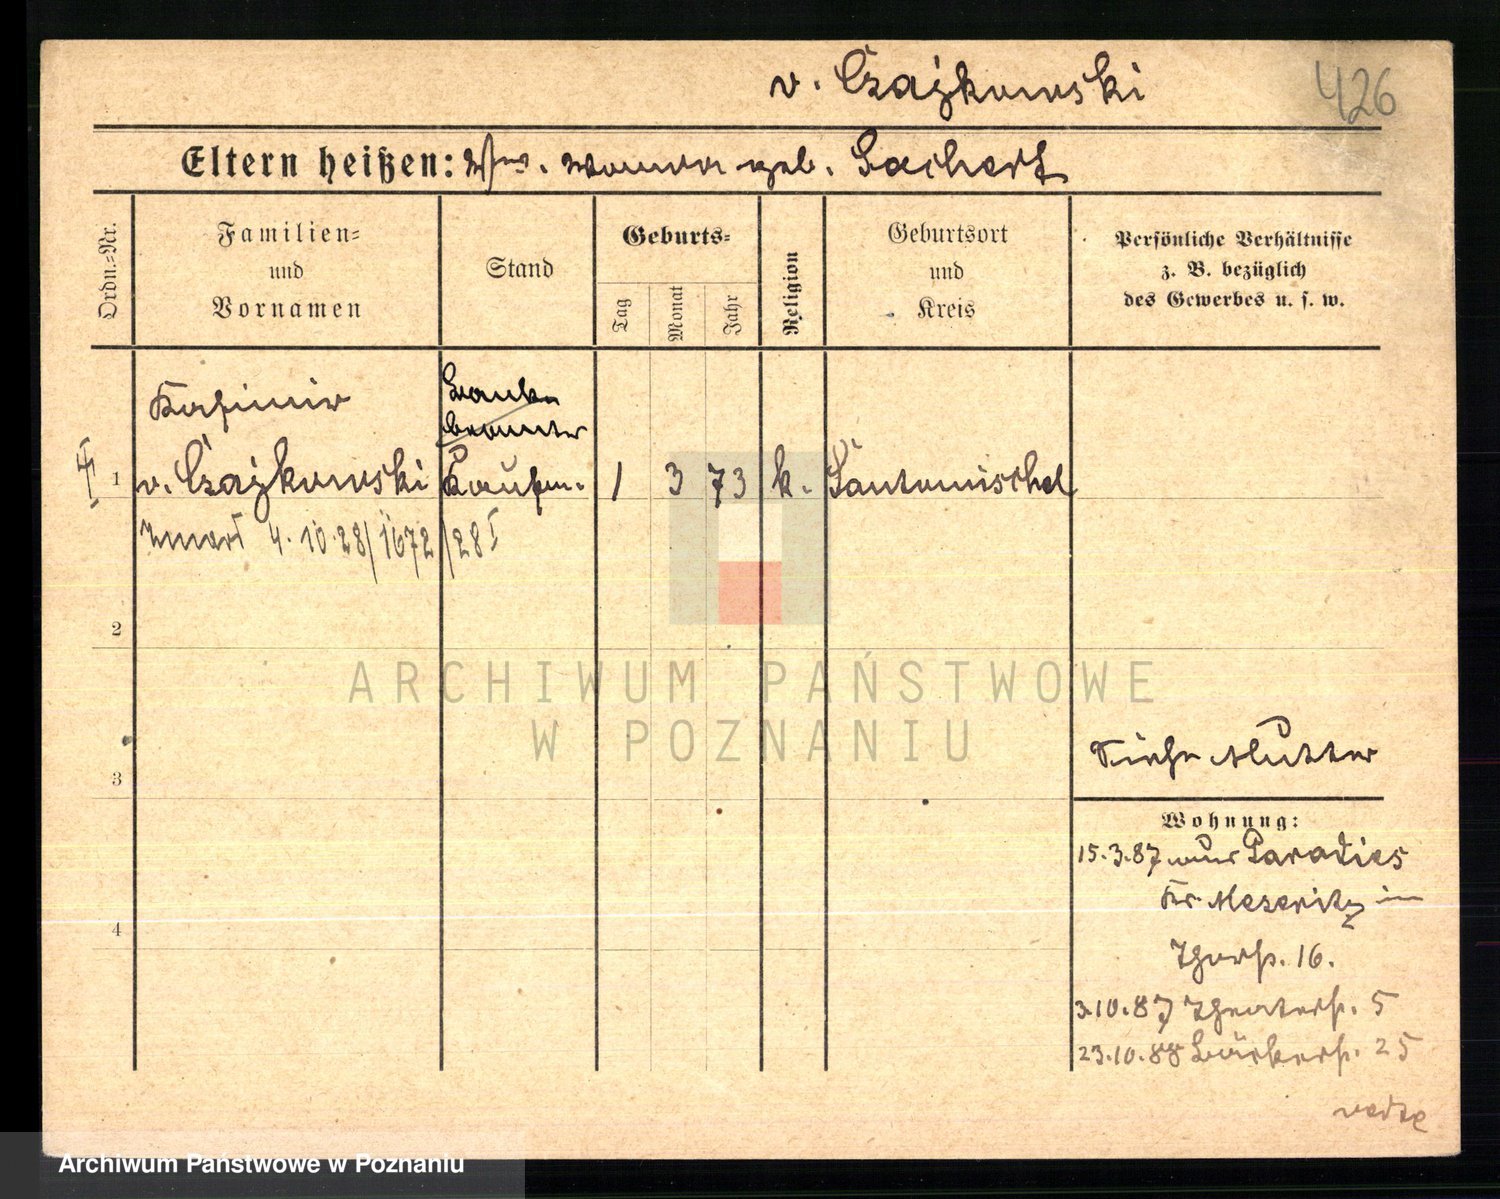 v. Czajkowski
426
Eltern heißen: Ww. Wanda geb. Sachert
Ordn.-Nr.
Familien-
und
Vornamen
Stand
Geburts-
Tag
Monat
Jahr
Religion
Geburtsort
und
Kreis
Persönliche Verhältnisse
z. B. bezüglich
des Gewerbes u. s. w.
Kasimir
Bank
beamter
1
v. Czajkowski
Kaufm.
1
3
73
k.
Santomischel
zmarł 4.10.28/1672/28 I
2
3
4
Siehe Mutter
Wohnung:
15.3.87 aus Paradies
Kr. Meseritz in
Thorst. 16.
3.10.87 Theaterst. 5
23.10.88 Bäckerst. 25
verte
ARCHIWUM PAŃSTWOWE
W POZNANIU
Archiwum Państwowe w Poznaniu